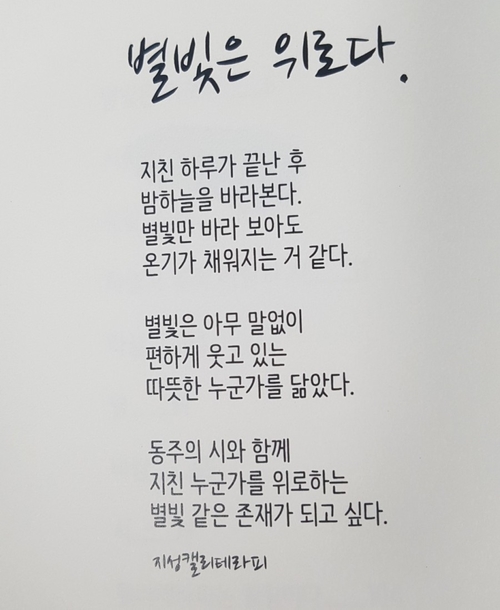 별빛은 위로다.
지친 하루가 끝난 후
밤하늘을 바라본다.
별빛만 바라 보아도
온기가 채워지는 거 같다.
별빛은 아무 말없이
편하게 웃고 있는
따뜻한 누군가를 닮았다.
동주의 시와 함께
지친 누군가를 위로하는
별빛 같은 존재가 되고 싶다.
지성캘리테라피